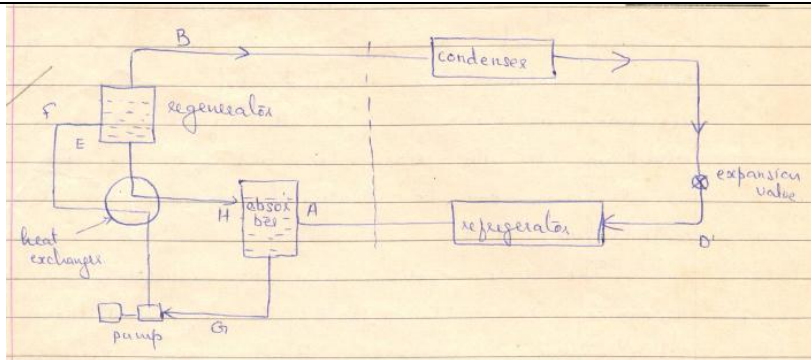 B
condenser
F
regenerator
E
expansion
valve
H
absor
ber
A
refrigerator
D'
heat
exchanger
G
pump